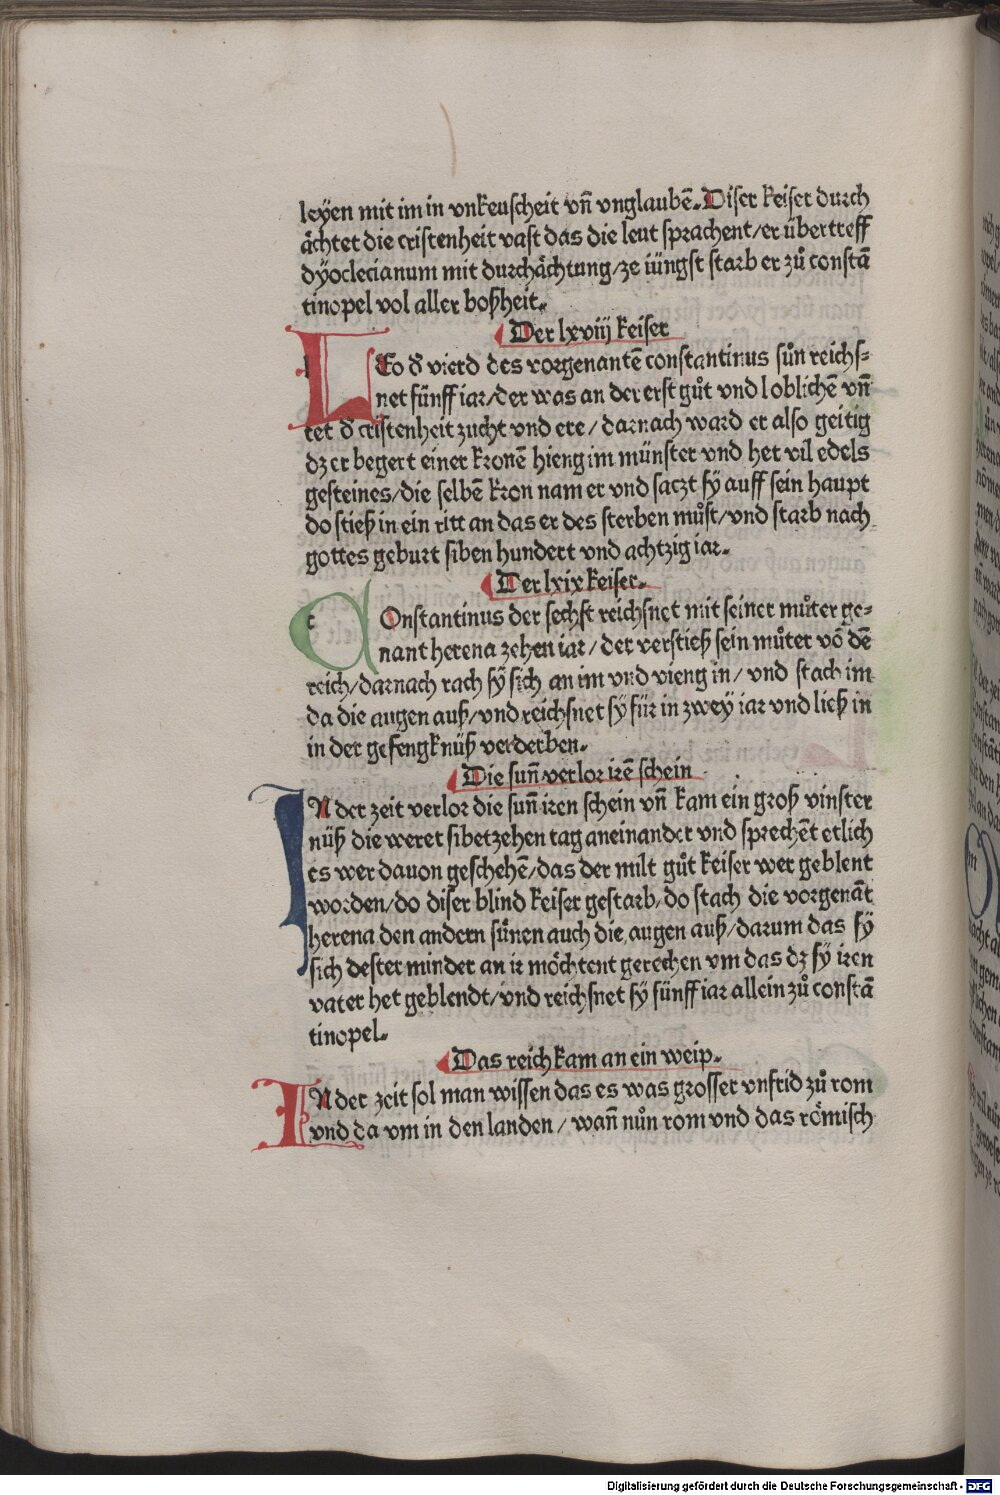 leyen mit im in vnkeuscheit vñ vnglaubẽ. Diser keiser durch
ächtet die cristenheit vast das die leut sprachent/er übertreff
dyoclecianum mit durchächtung/ze iüngst starb er zů constã
tinopel vol aller boßheit.
Der lxviij keiser
LEo d̕ vierd des vorgenantẽ constantinus sůn reichs⸗
net fünff iar/der was an der erst gůt vnd loblichẽ vñ
tet d̕ cristenheit zucht vnd ere/darnach ward er also geitig
dz er begert einer kronẽ hieng im münster vnd het vil edels
gesteines/die selbẽ kron nam er vnd saczt sy auff sein haupt
do stieß in ein ritt an das er des sterben můst/vnd starb nach
gottes geburt siben hundert vnd achtzig iar.
Der lxix keiser.
COnstantinus der sechst reichsnet mit seiner můter ge⸗
nant herena zehen iar/der verstieß sein můter võ dẽ
reich/darnach rach sy sich an im vnd vieng in/vnd stach im
da die augen auß/vnd reichsnet sy für in zwey iar vnd ließ in
in der gefengknüß verderben.
Die suñ verlor irẽ schein
IN der zeit verlor die suñ iren schein vñ kam ein groß vinster
nüß die weret sibetzehen tag aneinander vnd sprechẽt etlich
es wer dauon geschehẽ/das der milt gůt keiser wer geblent
worden/do diser blind keiser gestarb/do stach die vorgenãt
herena den andern sůnen auch die augen auß/darum das sy
sich dester minder an ir möchtent gerechen vm das dz sy iren
vater het geblendt/vnd reichsnet sy fünff iar allein zů constã
tinopel.
Das reich kam an ein weip.
IN der zeit sol man wissen das es was grosser vnfrid zů rom
vnd da vm in den landen/wañ nůn rom vnd das römisch
Digitalisierung gefördert durch die Deutsche Forschungsgemeinschaft - DFG